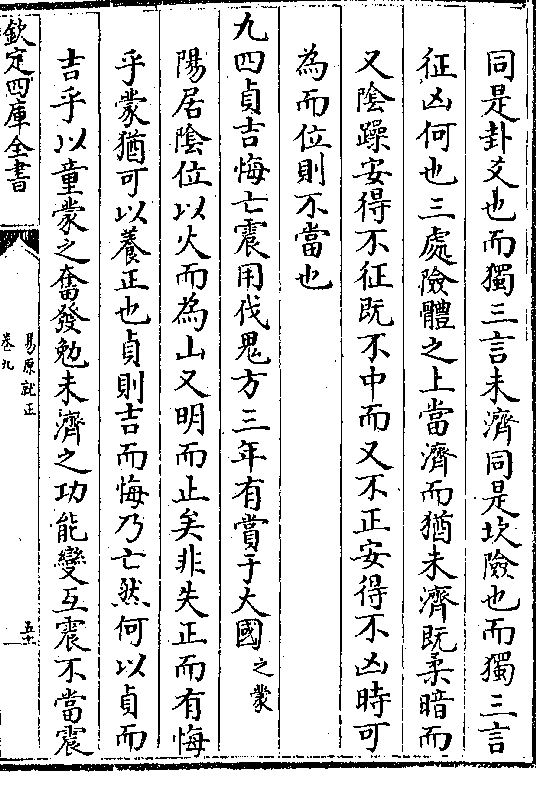 同是卦爻也而獨三言未濟同是坎險也而獨三言
征凶何也三處險體之上當濟而猶未濟既柔暗而
又陰躁安得不征既不中而又不正安得不凶時可
為而位則不當也
九四貞吉悔亡震用伐鬼方三年有賞于大國之蒙
陽居陰位以火而為山又明而止矣非失正而有悔
乎蒙猶可以養正也貞則吉而悔乃亡然何以貞而
吉乎以童蒙之奮發勉未濟之功能變互震不當震
欽定四庫全書
易原就正
卷九